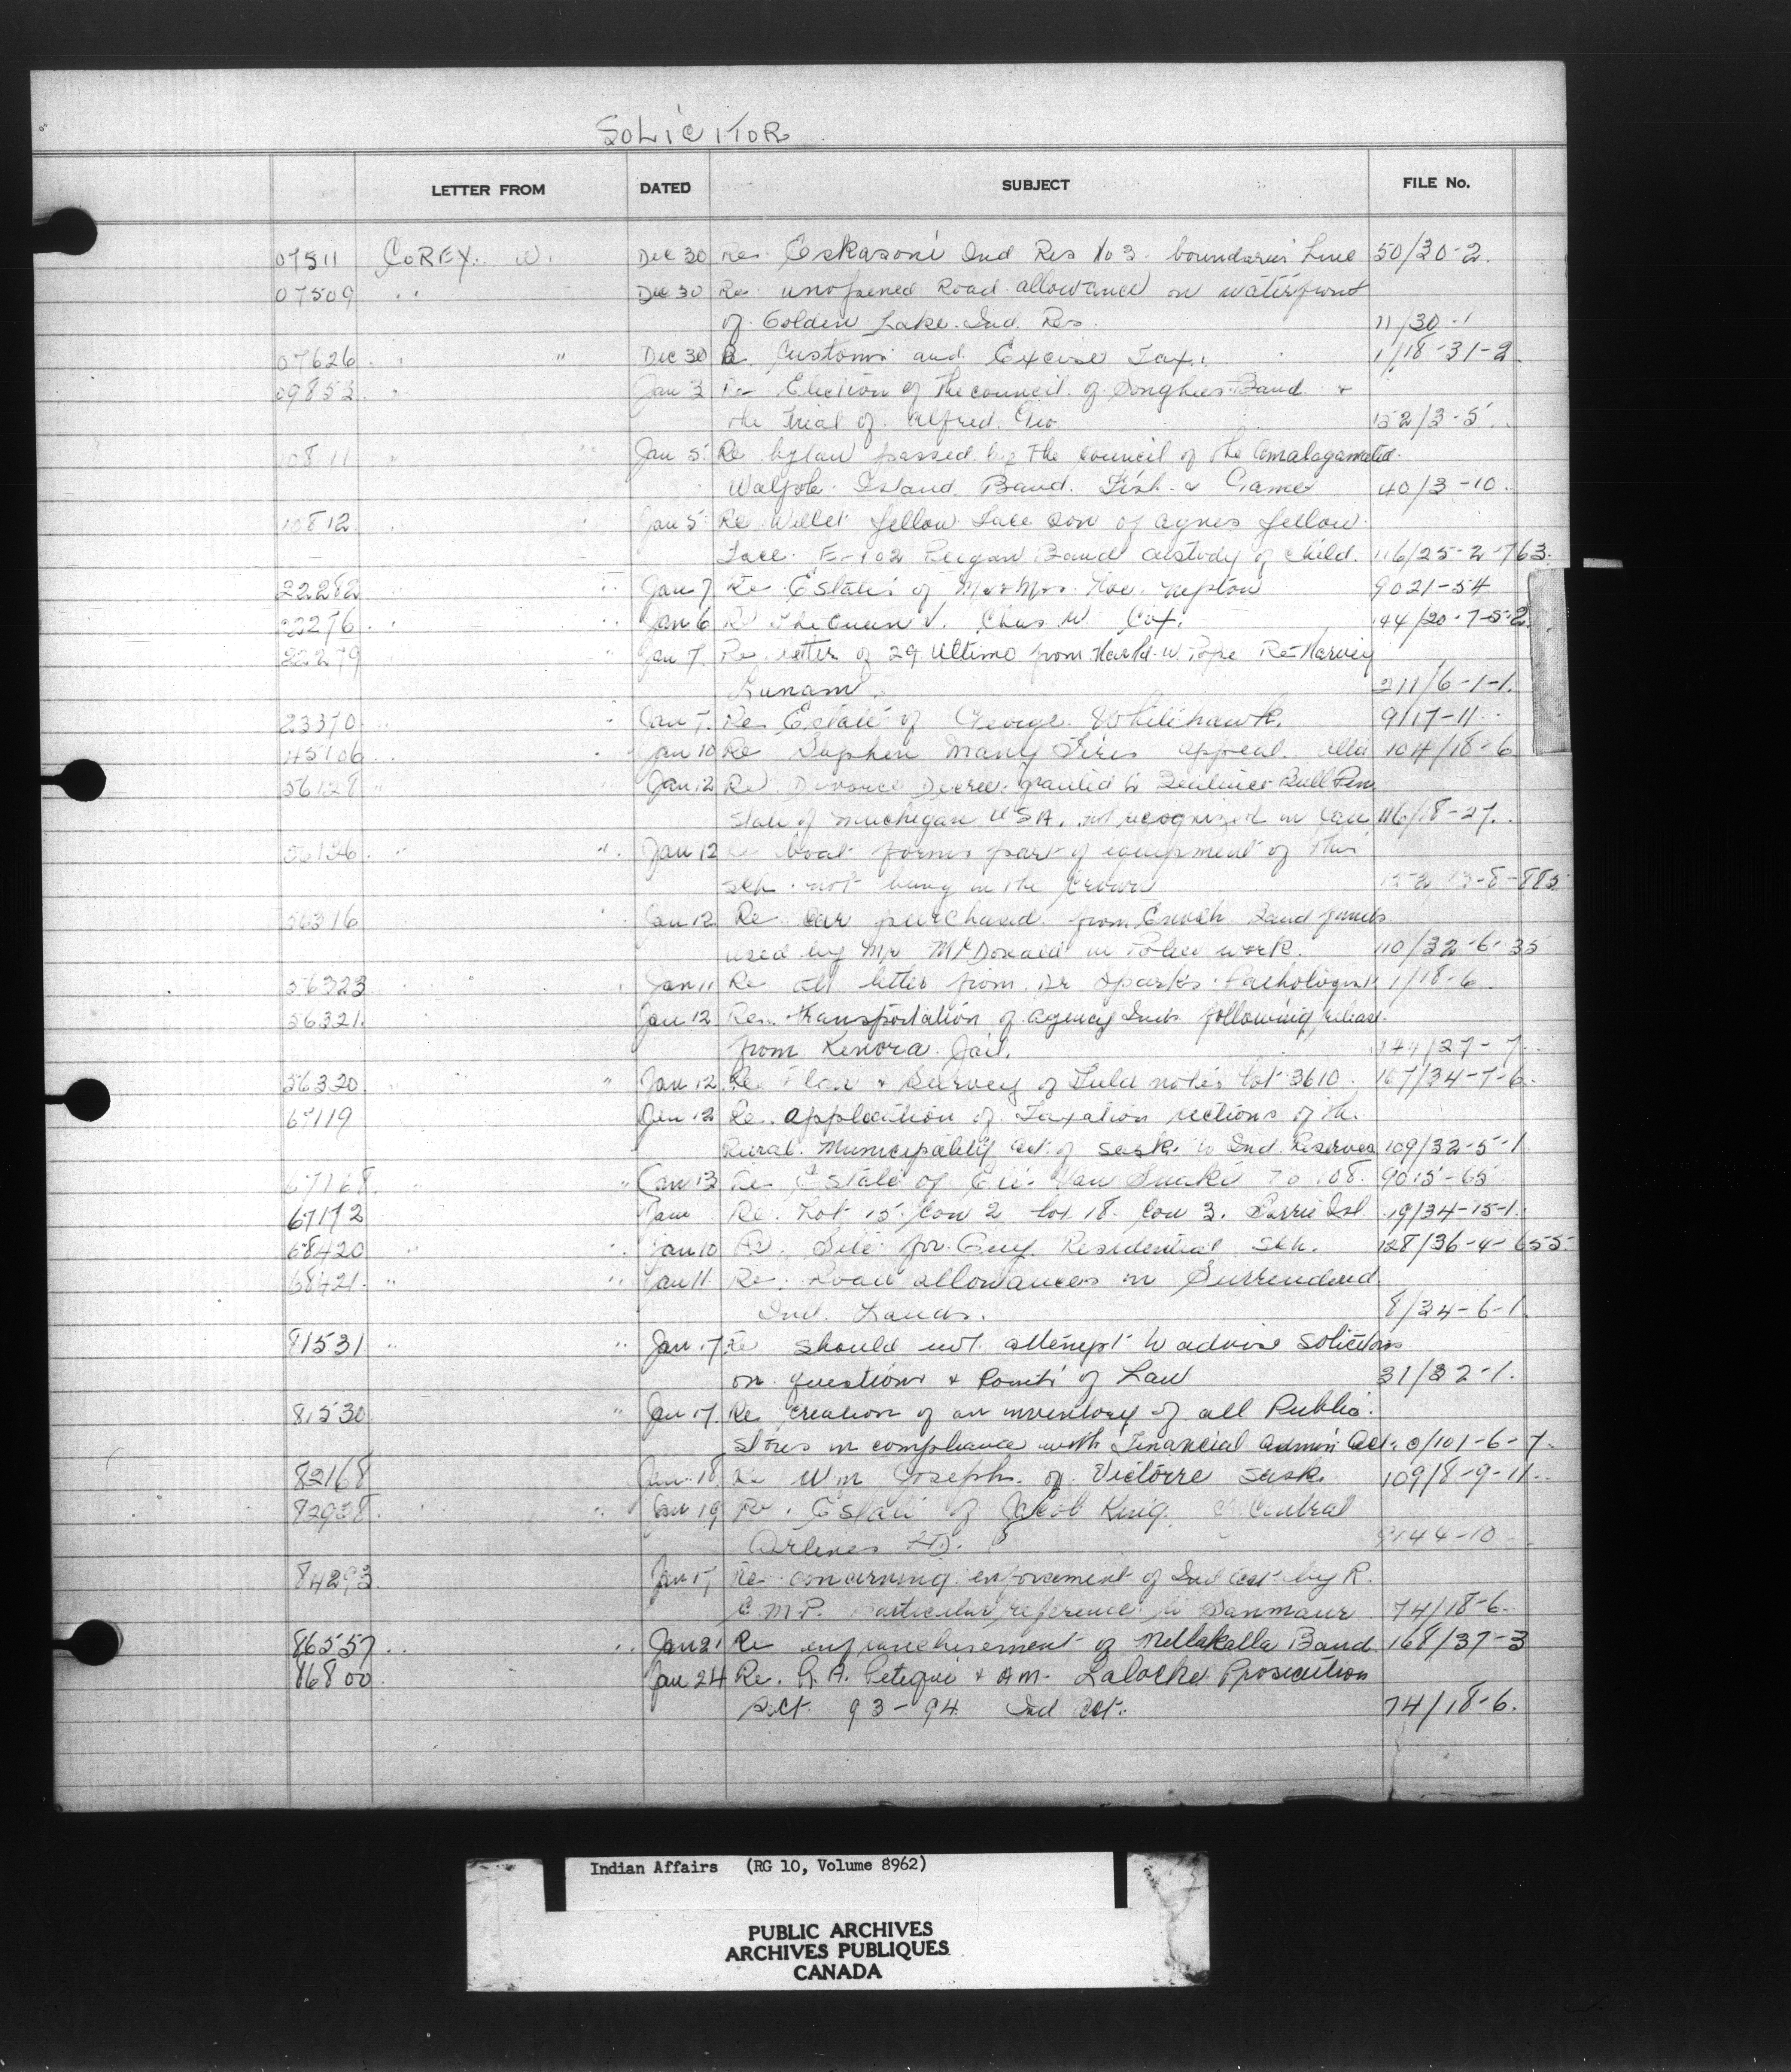 SOLICITOR
LETTER FROM DATED SUBJECT FILE No.
07511 COREY. W. Dec 30 Re Eskasoni Ind Res No 3. boundaries Line 50/30-2.
07509 " Dec 30 Re unopened Road allowance on waterfront
of Golden Lake Ind. Res. 11/30-1
07626 " " Dec 30 Re Customs and Excise Tax. 1/18-31-2
09853 " Jan 3 Re Election of the council of Songhees Band &
the trial of Alfred Geo 152/3-5.
10811 " " Jan 5 Re bylaw passed by the council of the Amalagamated
Walpole Island Band. Fish & Game 40/3-10.
10812 " Jan 5 Re Willet Yellow Face son of Agnes Yellow
Face E-102 Peigan Band custody of child. 116/25-2-763.
22282 " " Jan 7 Re Estates of Mr & Mrs 9021-54
22276 " " Jan 6 Re The Queen V. Chas W. Cox. 44/20-7-5-2
22279 " Jan 7 Re letter of 29 Ultimo from Harold W Pope Re Harvey
Lunam. 211/6-1-1.
23370 " " Jan 7. Re Estate of George Whitehawk. 9117-11
45106 " " Jan 10 Re Stephen Many Fires appeal. Alta 104/18-6
56128 " Jan 12 Re Divorce Decree granted to Bull Pen
State of Muchegan USA. not recognized in Can 116/18-27.
56126. " " Jan 12 Re boat forms part of equipment of this
sch. not being in the Crown
56316 " Jan 12 Re car purchased from Enoch Band funds
used by Mr McDonald in Police work. 110/32-6-35
56323 " Jan 11 Re letter from Dr Sparks Pathologist 1/18-6
56321. Jan 12 Re transportation of agency Inds following release
from Kenora Jail. 144/27-7
56320. " " Jan 12 Re Plan & Survey of Field notes lot 3610. 167/34-7-6.
67119 Jan 12 Re application of Taxation sections of the
Rural Municipality act of Sask. to Ind. Reserves 109/32-5-1
67168 " " Jan 13 Re Estate of 9015-65
67172 Jan Re. Lot 15 Con 2 lot 18 Con 3. Barrie Isl. 19/34-15-1.
68420 " " Jan 10 Re Site for Guy Residential Sch. 128/36-4-655
68421. " " Jan 11 Re. Road allowances in Surrendered
Ind. Lands. 8/34-6-1
81531 " " Jan 17 Re should not attempt to advise solicitors
on questions & Points of Law 31/32-1.
81530 " Jan 17. Re creation of an inventory of all Public
stores in compliance with Financial Admin Act. 0/101-6-7.
82168 Jan 18 Re Wm Joseph. of Victoire Sask. 109/8-9-11
82938. " " Jan 19 Re. Estate of Jacob King. Central
Airlines LTD. 9144-10
84293 Jan 17 Re concerning enforcement of Ind Act by R.
C.M.P. Particular reference to Sanmaur 74/18-6.
86557 " " Jan 21 Re enfranchisement of Metlakatla Band 168/37-3
86800 Jan 24 Re. R.A. Petequi & AM. Laloche Prosecution
Sect. 93-94 Ind Act. 74/18-6.
Indian Affairs (RG 10, Volume 8962)
PUBLIC ARCHIVES
ARCHIVES PUBLIQUES
CANADA